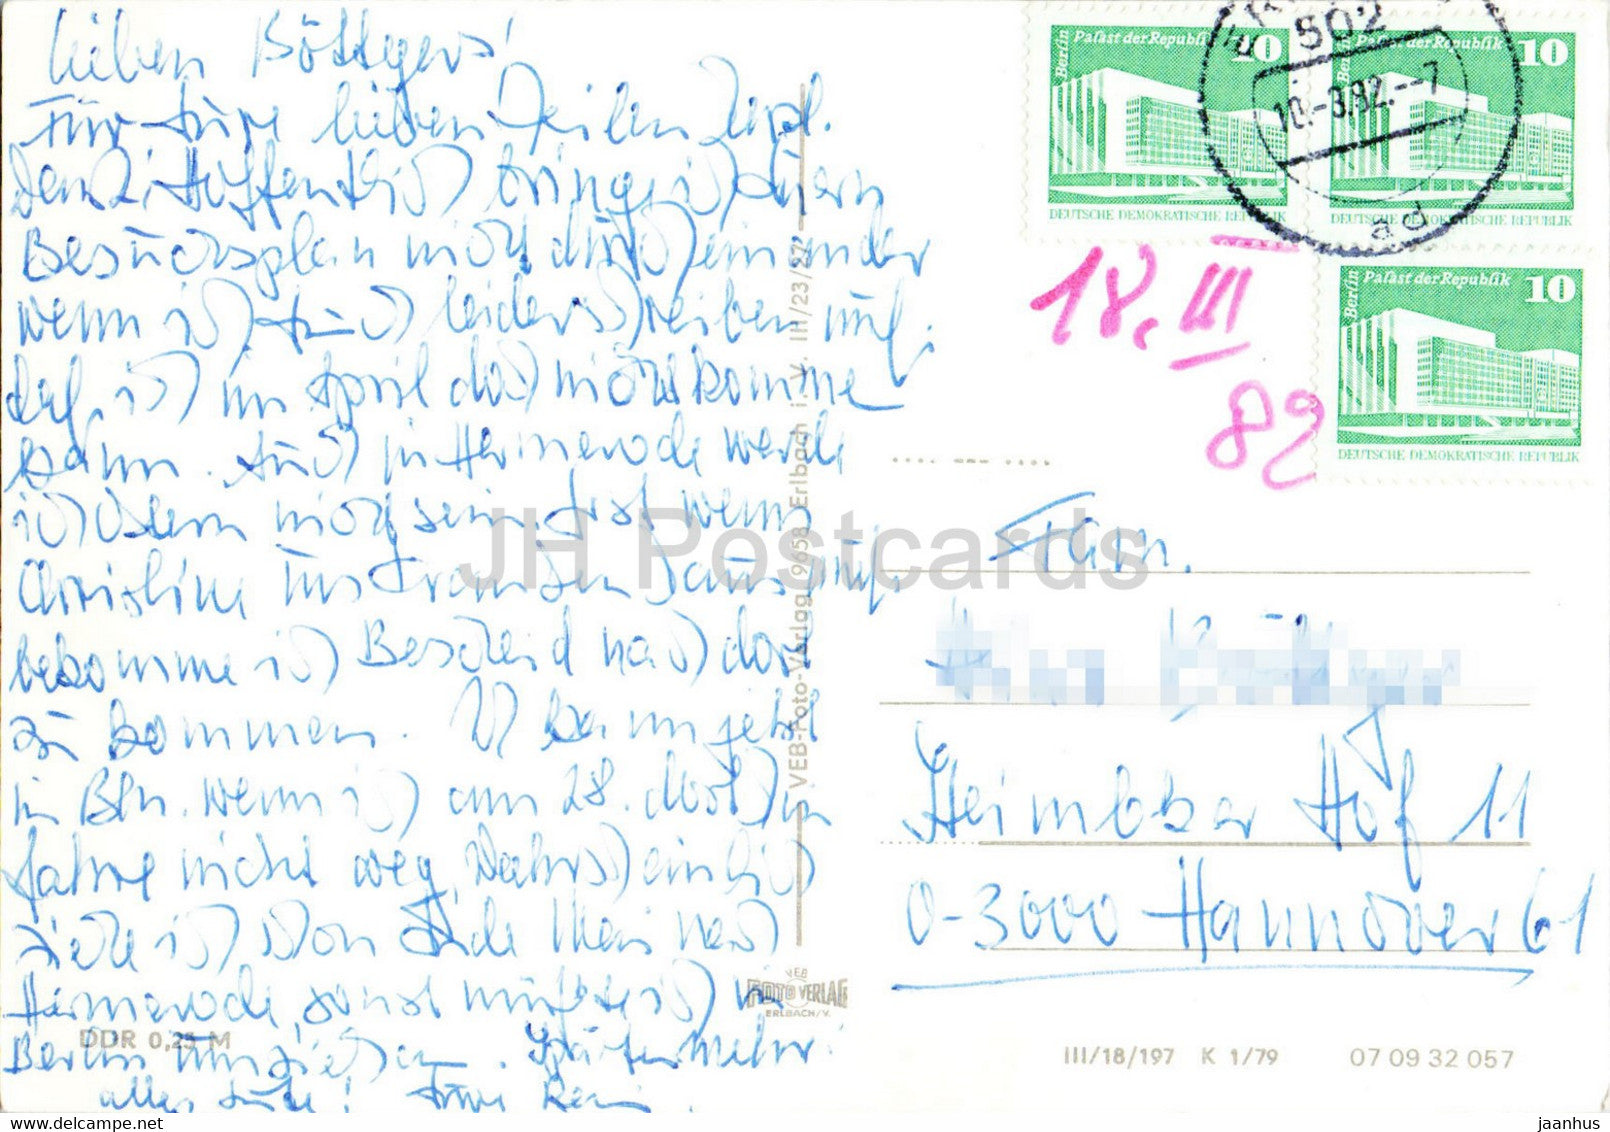 Lieben Böttgers!
Für Eure lieben Zeilen herzl.
Dank! Hoffentlich bringe ich Euern
Besuchsplan nicht durcheinander
wenn ich Euch leider schreiben muß,
daß ich im April doch nicht komme
kann. Auch in Hermerode werde
ich Ostern nicht sein. Erst wenn
Christine ins Krankenhaus muß
bekomme ich Bescheid nach dort
zu kommen. Ich kann jetzt
in Bln. wenn ich am 28. dort bin
nicht weg. Wahrscheinlich
ziehe ich schon Ende Mai nach
Hermerode, sonst müßte ich in
Berlin umziehen. Später mehr!
alles Gute! Eure
10 Berlin Palast der Republik
DEUTSCHE DEMOKRATISCHE REPUBLIK
10 Berlin Palast der Republik
DEUTSCHE DEMOKRATISCHE REPUBLIK
10 Berlin Palast der Republik
DEUTSCHE DEMOKRATISCHE REPUBLIK
502
10.-3.82.--7
ad
18. III
82
Fam.
Hof 11
0-3000 Hannover 61
VEB-Foto-Verlag 9658 Erlbach i. V. III/23/27
VEB
FOTO VERLAG
ERLBACH/V.
DDR 0,25 M
III/18/197 K 1/79 07 09 32 057
JH Postcards
jaanhus